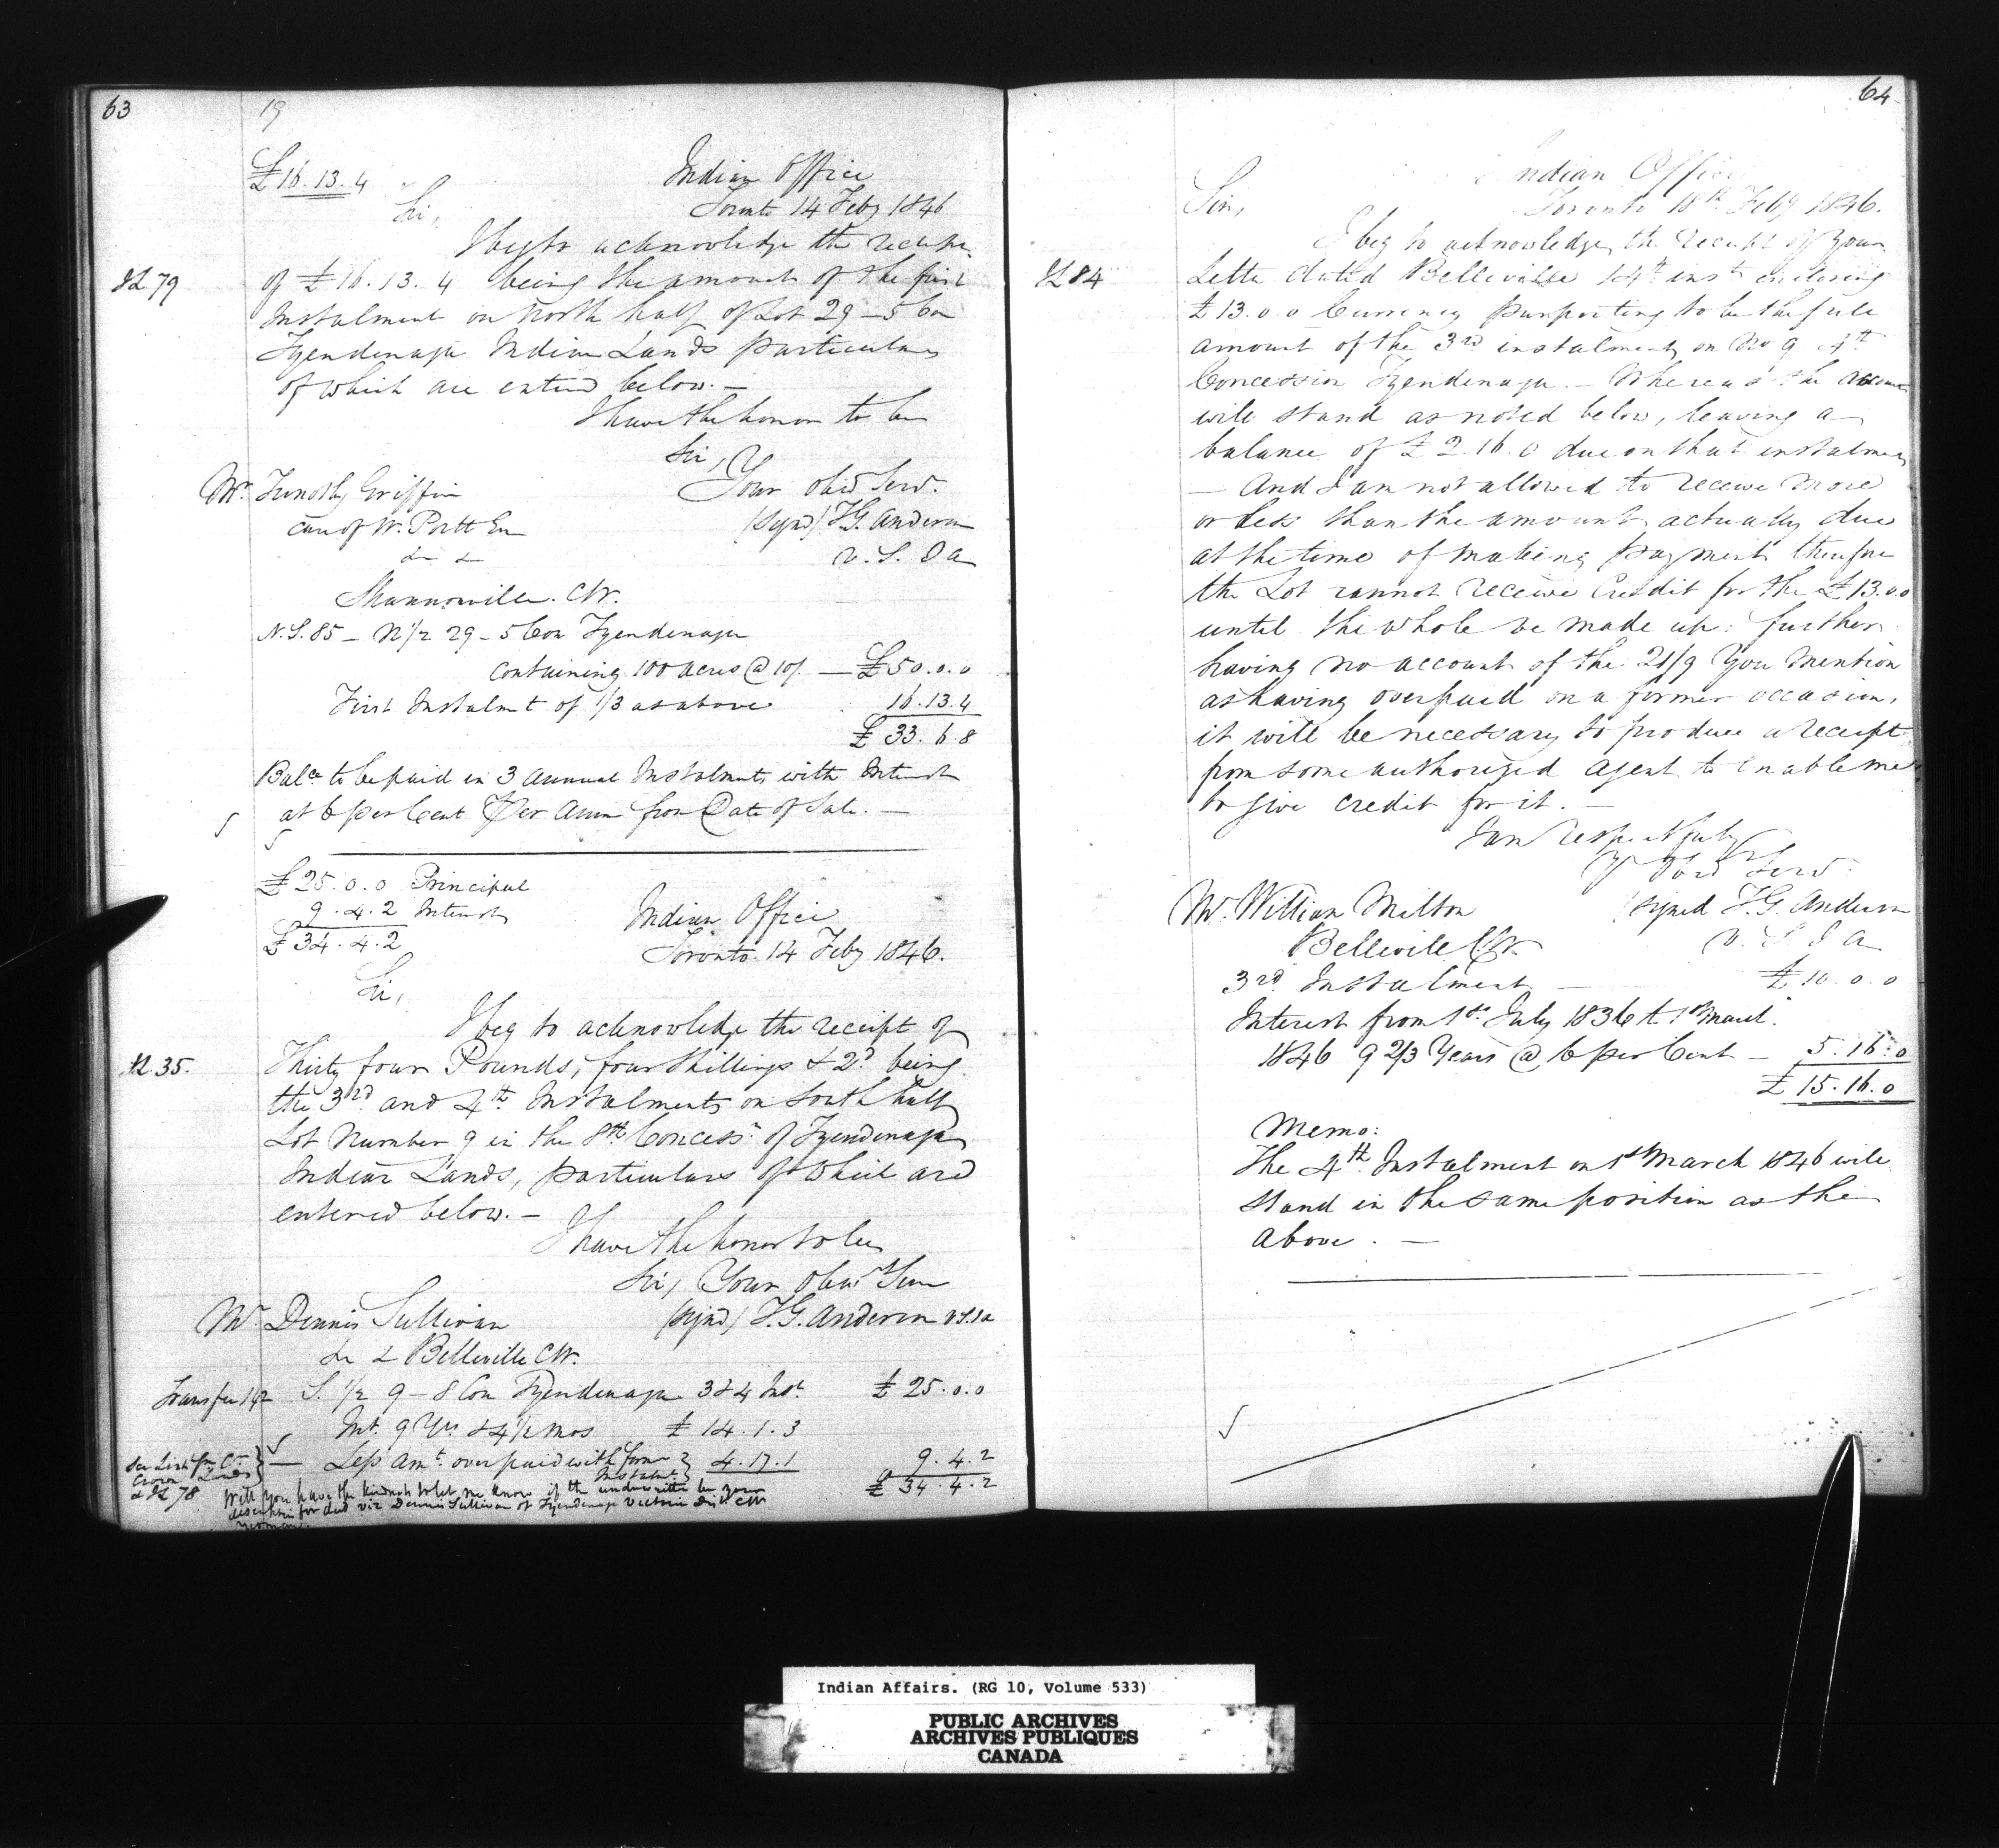 63
19
£16.13.4
Indian Office
Toronto 14 Feby 1846
Sir,
I beg to acknowledge the receipt
IL 79
of £16.13.4 being the amount of the first
Instalment on North half of Lot 29 - 5 Con
Tyendenaga Indian Lands particulars
of which are enterd below. —
I have the honor to be
Sir,
Your obed Serv.
Mr. Timothy Griffin
(Signd) T.G. Anderson
care of W. Portt Esq
V.S.I A
&c &c
Shannonville. CW.
N.S. 85 - N 1/2 29 - 5 Con Tyendenaga
Containing 100 acres @ 10/. — £50.0.0
First Instalmt of 1/3 as above 16.13.4
£ 33.6.8
Balce to be paid in 3 annual Instalments with Interest
at 6 per Cent Per Ann from Date of Sale. —
£25.0.0 Principal
9.4.2 Interest
£34.4.2
Indian Office
Toronto 14 Feby 1846.
Sir,
I beg to acknowledge the receipt of
IL 35.
Thirty four Pounds, four Shillings & 2d being
the 3rd and 4th Instalments on South half
Lot Number 9 in the 8th Concessn of Tyendenaga
Indian Lands, particulars of which are
entered below. —
I have the honor to be
Sir, Your Obed Serv
Mr. Dennis Sullivan
(Signd) T.G. Anderson VSIA
&c & Belleville CW.
Transfer 142 S. 1/2 9 - 8 Con Tyendenaga 3 & 4 Inst. £25.0.0
Int. 9 Yrs & 4 1/2 mos £14.1.3
See List fm Cr
Crown Lands
& IL 78
— Less Amt. over paid with from
Instalmt 4.17.1 9.4.2
£ 34.4.2
Will you have the kindness to let me know if the underwritten be your
description for deed viz Dennis Sullivan of Tyendenaga Victoria Dist CW
yeoman.
64
Indian Office
Toronto 18th Feby 1846.
Sir,
I beg to acknowledge the receipt of your
IL 84
Letter dated Belleville 14th inst enclosing
£13.0.0 Currency purporting to be the full
amount of the 3rd instalment on No 9 4th
Concession Tyendenaga. — Whereas the account
will stand as noted below, leaving a
balance of £2.16.0 due on that instalment
— And I am not allowed to receive more
or less than the amount actually due
at the time of making payment therefore
the Lot cannot receive Credit for the £13.0.0
until the whole be made up: further
having no account of the 21/9 You mention
as having overpaid on a former occasion,
it will be necessary to produce a receipt
from some authorized agent to enable me
to give credit for it. —
I am respectfully
Yr Obed Serv.
Mr. William Milton
(Signed T.G. Anderson
Belleville CW.
V.S I A
3rd Instalment — £10.0.0
Interest from 1st July 1836 to 1st March
1846 9 2/3 Years @ 6 per Cent — 5.16.0
£15.16.0
Memo:
The 4th Instalment on 1st March 1846 will
stand in the same position as the
above. —
Indian Affairs. (RG 10, Volume 533)
PUBLIC ARCHIVES
ARCHIVES PUBLIQUES
CANADA